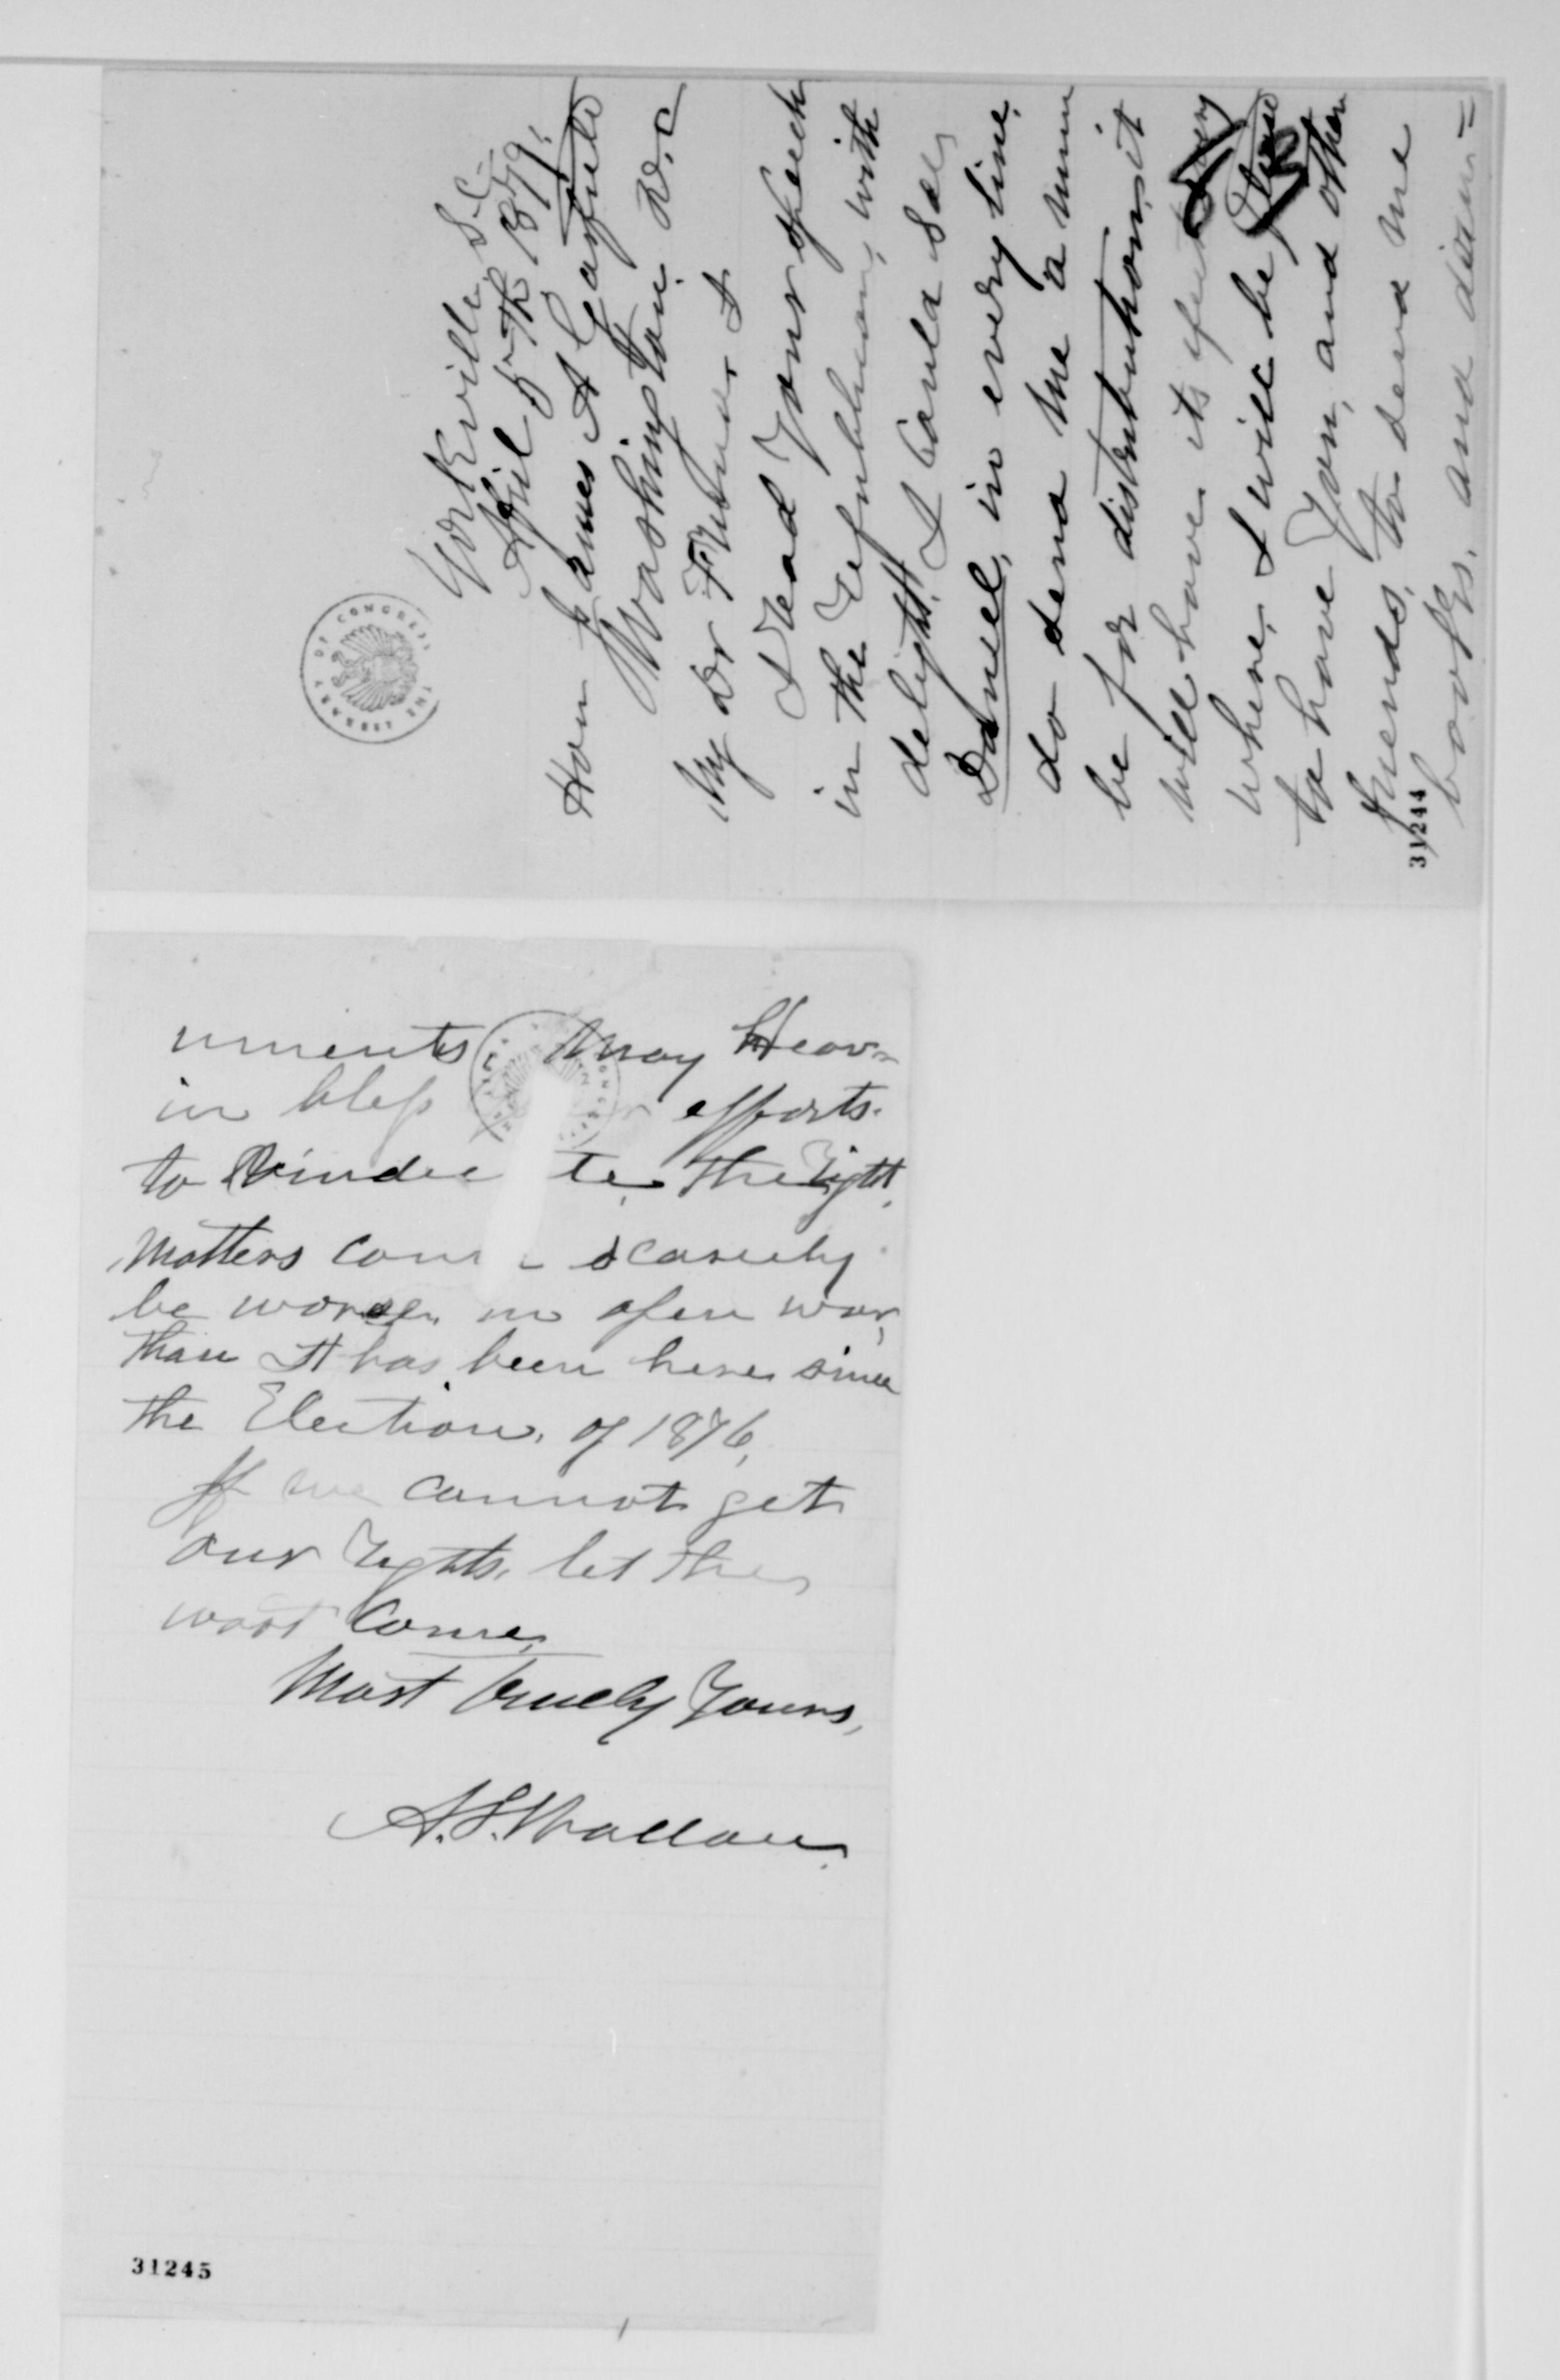 Yorkville S.C.
April 5th 1879,
Hon James A Garfield
Washington D.C
My Dr Friend, I
Read Your Speech
in the Republican, with
delight. I could see
Daniel, in every line,
do send me a num
ber for distribution, it
will have its effect every
where, I will be pleased
to have You, and other
friends, to send me
books, and docu=
31244
uments, May Heav-
in bless efforts.
to Vindic te the Right,
Matters could scarcely
be worse, in open war,
than It has been here since
the Election, of 1876,
If we cannot get
our rights, let the
worst come,
Most truely Yours,
A. S. Wallace
31245
THE LIBRARY OF CONGRESS